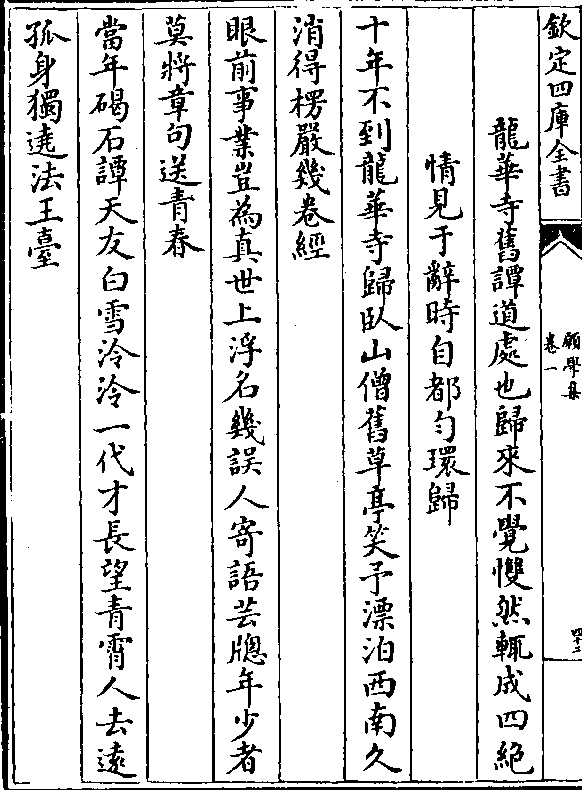 欽定四庫全書
願學集
卷一
四十二
龍華寺舊譚道處也歸來不覺雙然輒成四絶
情見于辭時自都勻環歸
十年不到龍華寺歸臥山僧舊草亭笑予漂泊西南久
消得楞嚴幾卷經
眼前事業豈為真世上浮名幾誤人寄語芸牕年少者
莫將章句送青春
當年碣石譚天友白雪泠泠一代才長望青霄人去遠
孤身獨遶法王臺